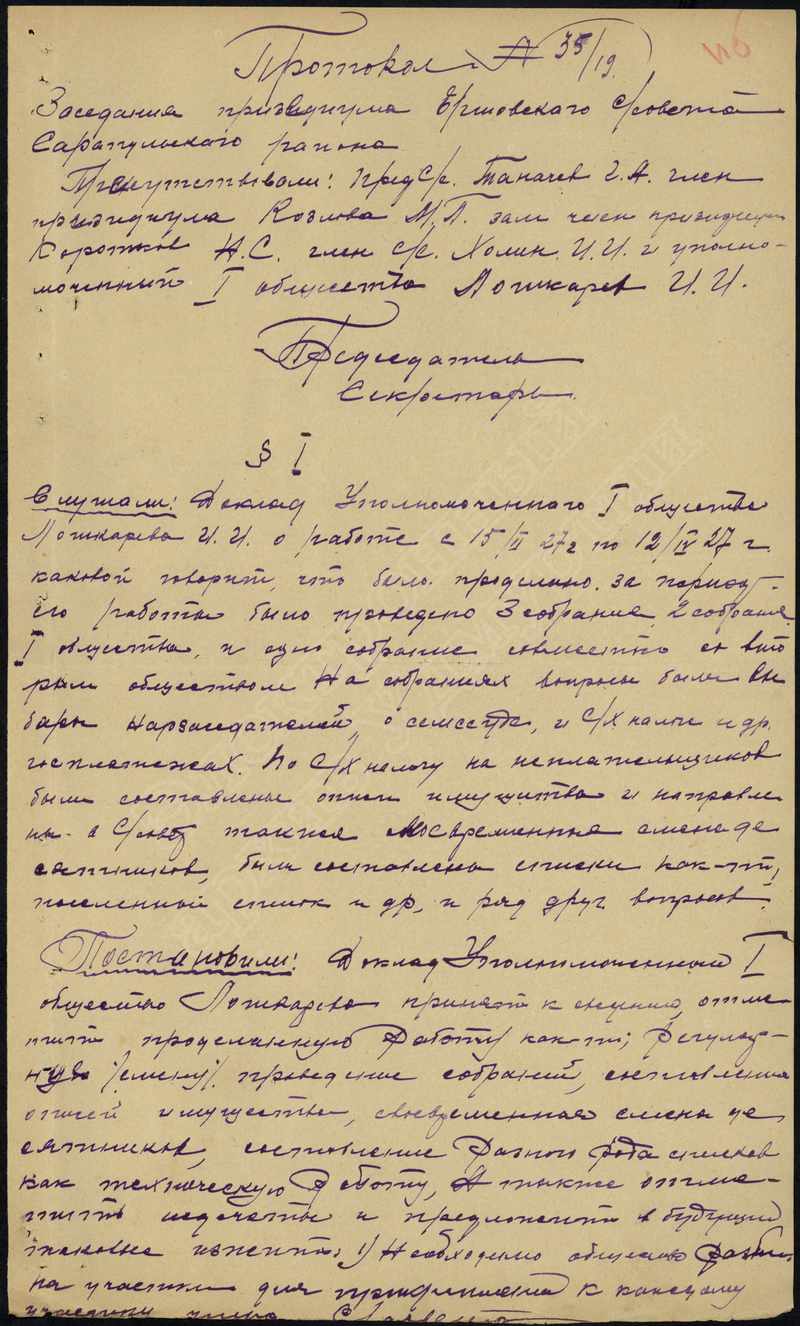 Протокол № 35/19.
Заседания призидиума Ершовского С/совета
Сарапульского района
Присутствовали: ПредС/с. Таначев Г.А. член
призидиума Козлова М.П. зам член призидиума
Коротков Н.С. член с/с. Холин И.И. и уполно-
моченный I общества Лошкарев И.И.
Председатель
Секретарь
§ I
Слушали: Доклад Уполномоченного I общества
Лошкарева И.И. о работе с 15/II 27г по 12/IV 27 г.
каковой говорит, что было проделано. за период
его работы было проведено 3 собрания, 2 собрания
I общества, и одно собрание совместно со вто
рым обществом На собраниях вопросы были вы
боры нарзаседателей, о семссуде, и С/Х налоге и др.
госплатежах. По С/Х налогу на неплательщиков
были составлены описи имущества и направле
ны в С/совет также своевременная смена де
сятников, были составлены списки как-то,
поселенный список и др, и ряд друг вопросов.
Постановили: Доклад Уполномоченный I
общество Лошкарева принять к сведению, отме
тить проделанную работу как-то; Регуляр-
ную /смену/ проведение собраний, составления
описей имущества, своевременная смена де
сятников, составление разного рода списков
как техническую работу, А также отме-
тить недочеты и предложить в будущем
таковые изжить: 1) Необходимо общество разбить
на участки для прикрепления к каждому
участку члена